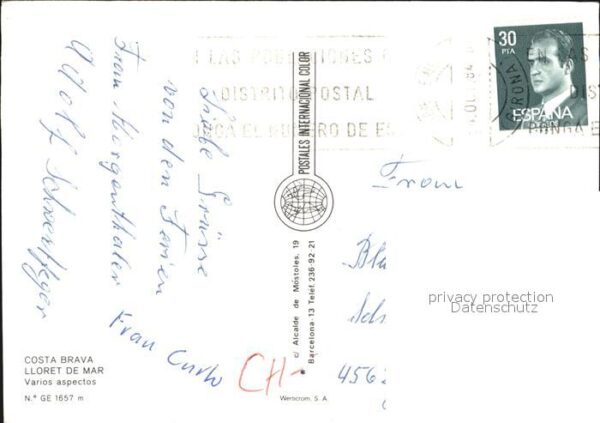 Liebe Grüsse
von den Ferien
Frau Morgenthaler
Adolf
Frau
COSTA BRAVA
LLORET DE MAR
Varios aspectos
N.º GE 1657 m
POSTALES INTERNACIONAL COLOR
c/ Alcalde de Móstoles, 19
Barcelona-13 Telef. 236-92-21
Wertscrom, S. A.
LAS POBLACIONES
DISTRITO POSTAL
PONGA EL NUMERO DE
30
PTA
ESPAÑA
EN LAS
DISTR
PONGA E
From
CH-
456
privacy protection
www.oldthing.de